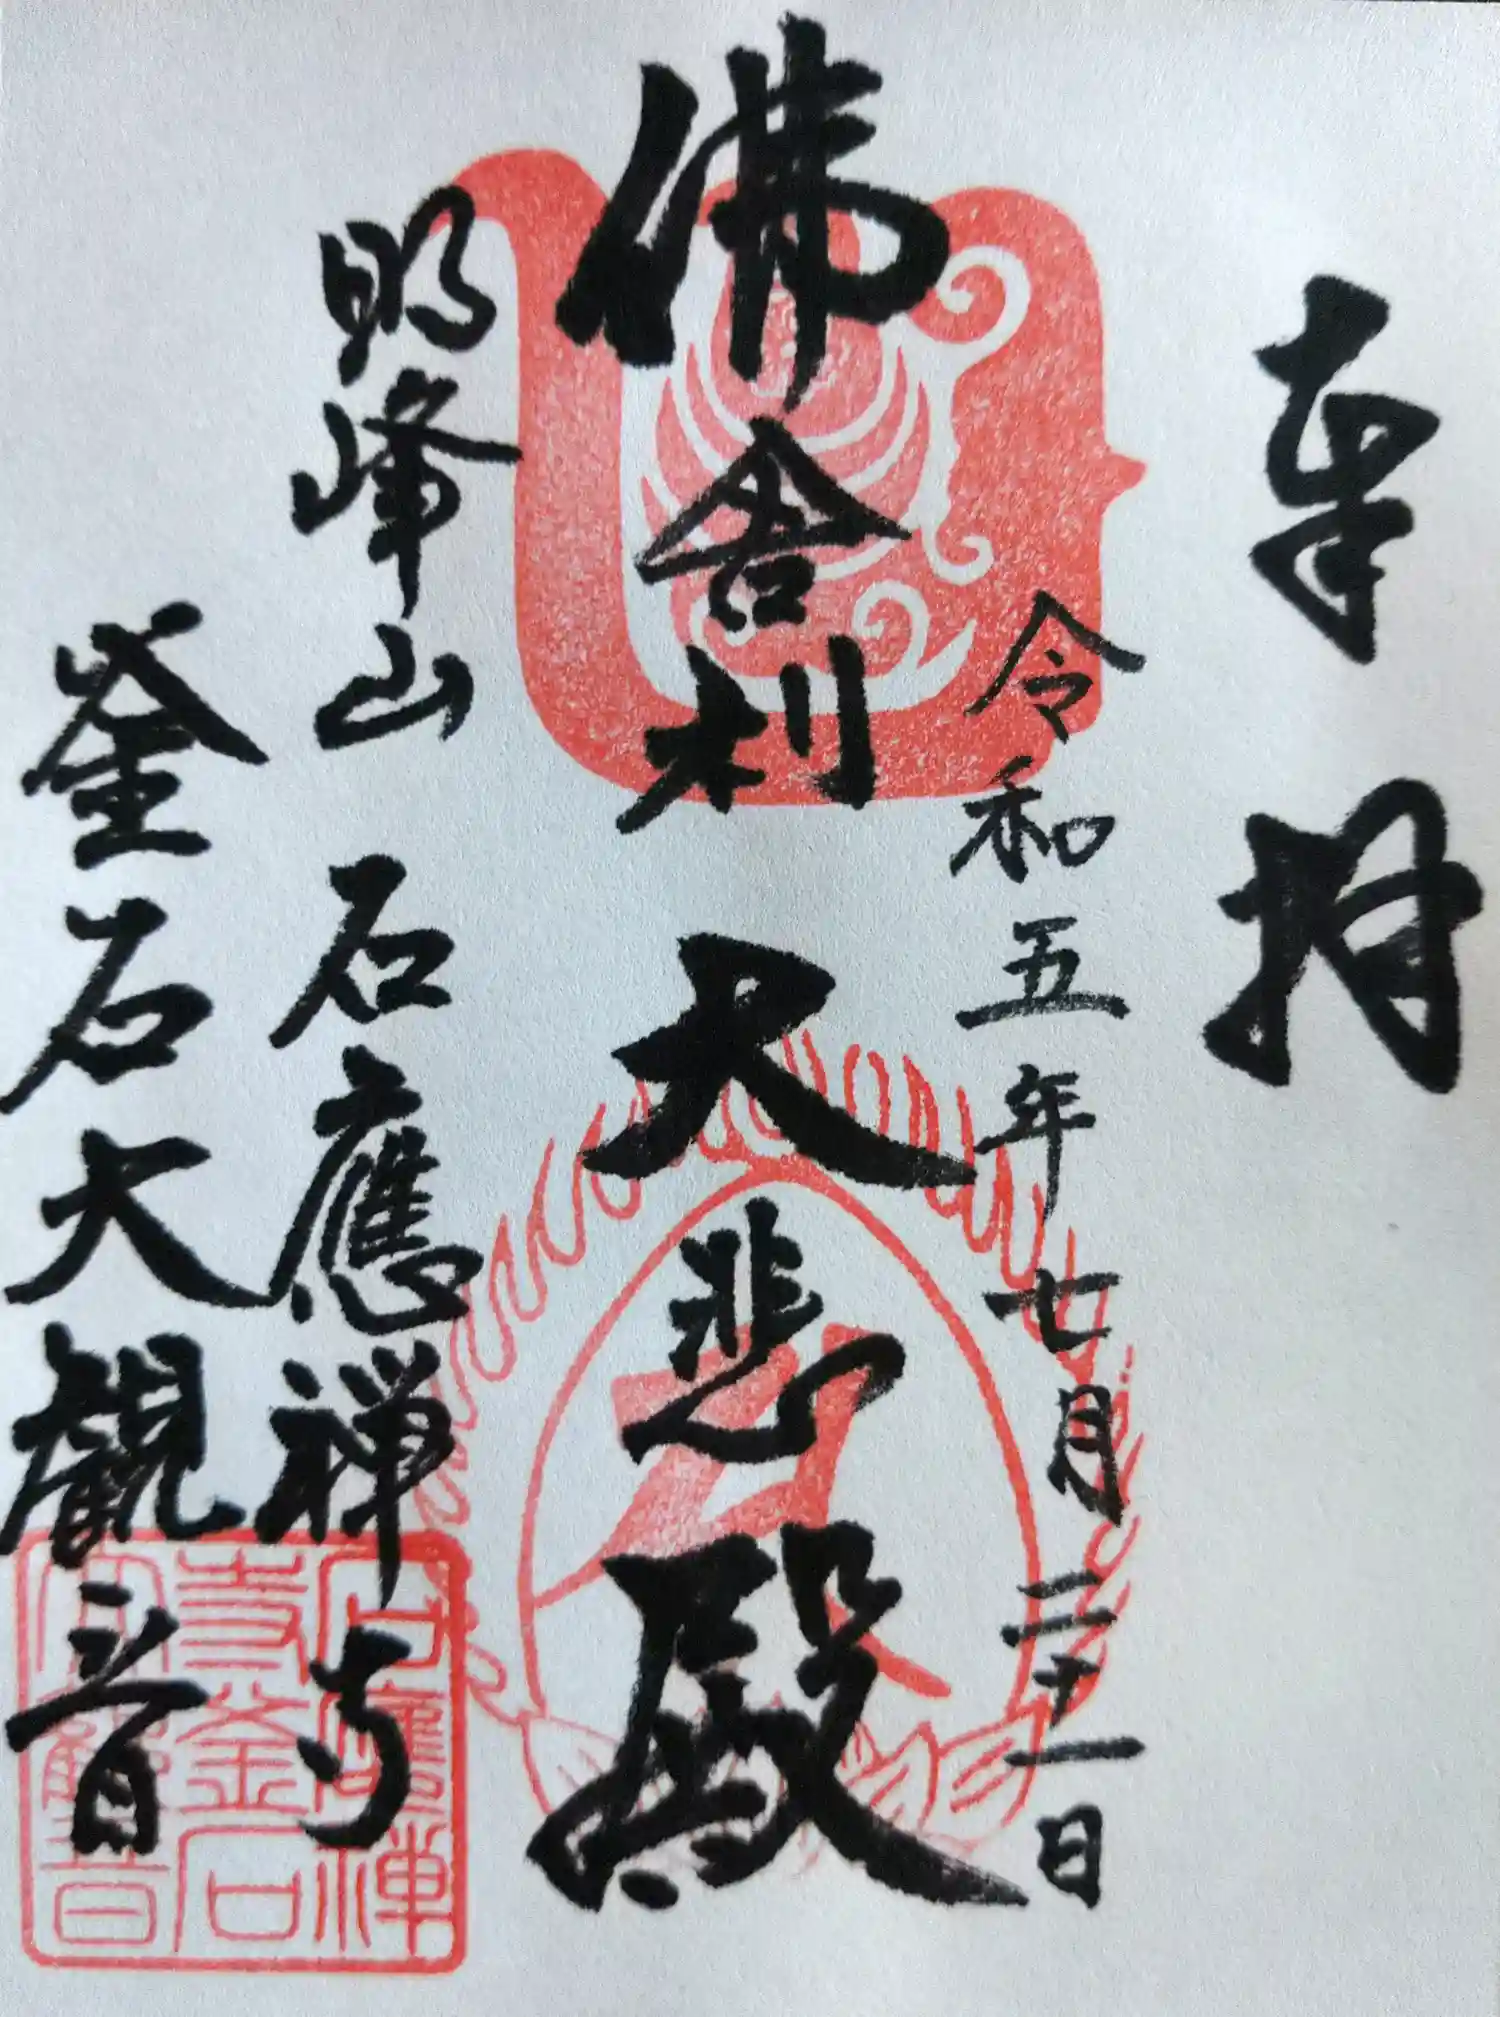 奉拝
令和五年七月二十一日
佛舎利
大悲殿
明峰山 石應禅寺
釜石大観音
石應禅
寺釜石
大観音